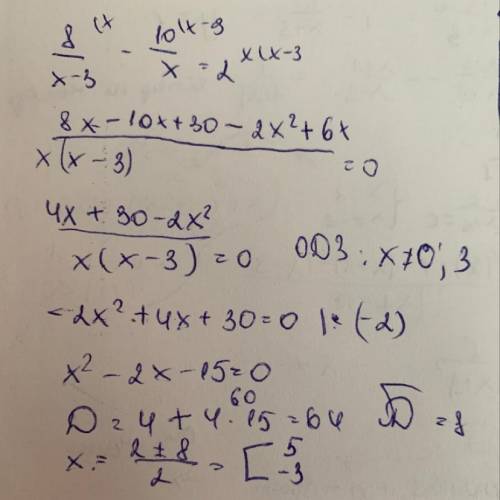 8/(x-3) ⁽ˣ - 10/x ⁽ˣ⁻³ = 2 ˣ⁽ˣ⁻³
(8x - 10x + 30 - 2x² + 6x)/(x(x-3)) = 0
(4x + 30 - 2x²)/(x(x-3)) = 0 ОДЗ: x≠0; 3
-2x² + 4x + 30 = 0 |: (-2)
x² - 2x - 15 = 0
60
D = 4 + 4·15 = 64 √D = 8
x = (2±8)/2 = [5 -3